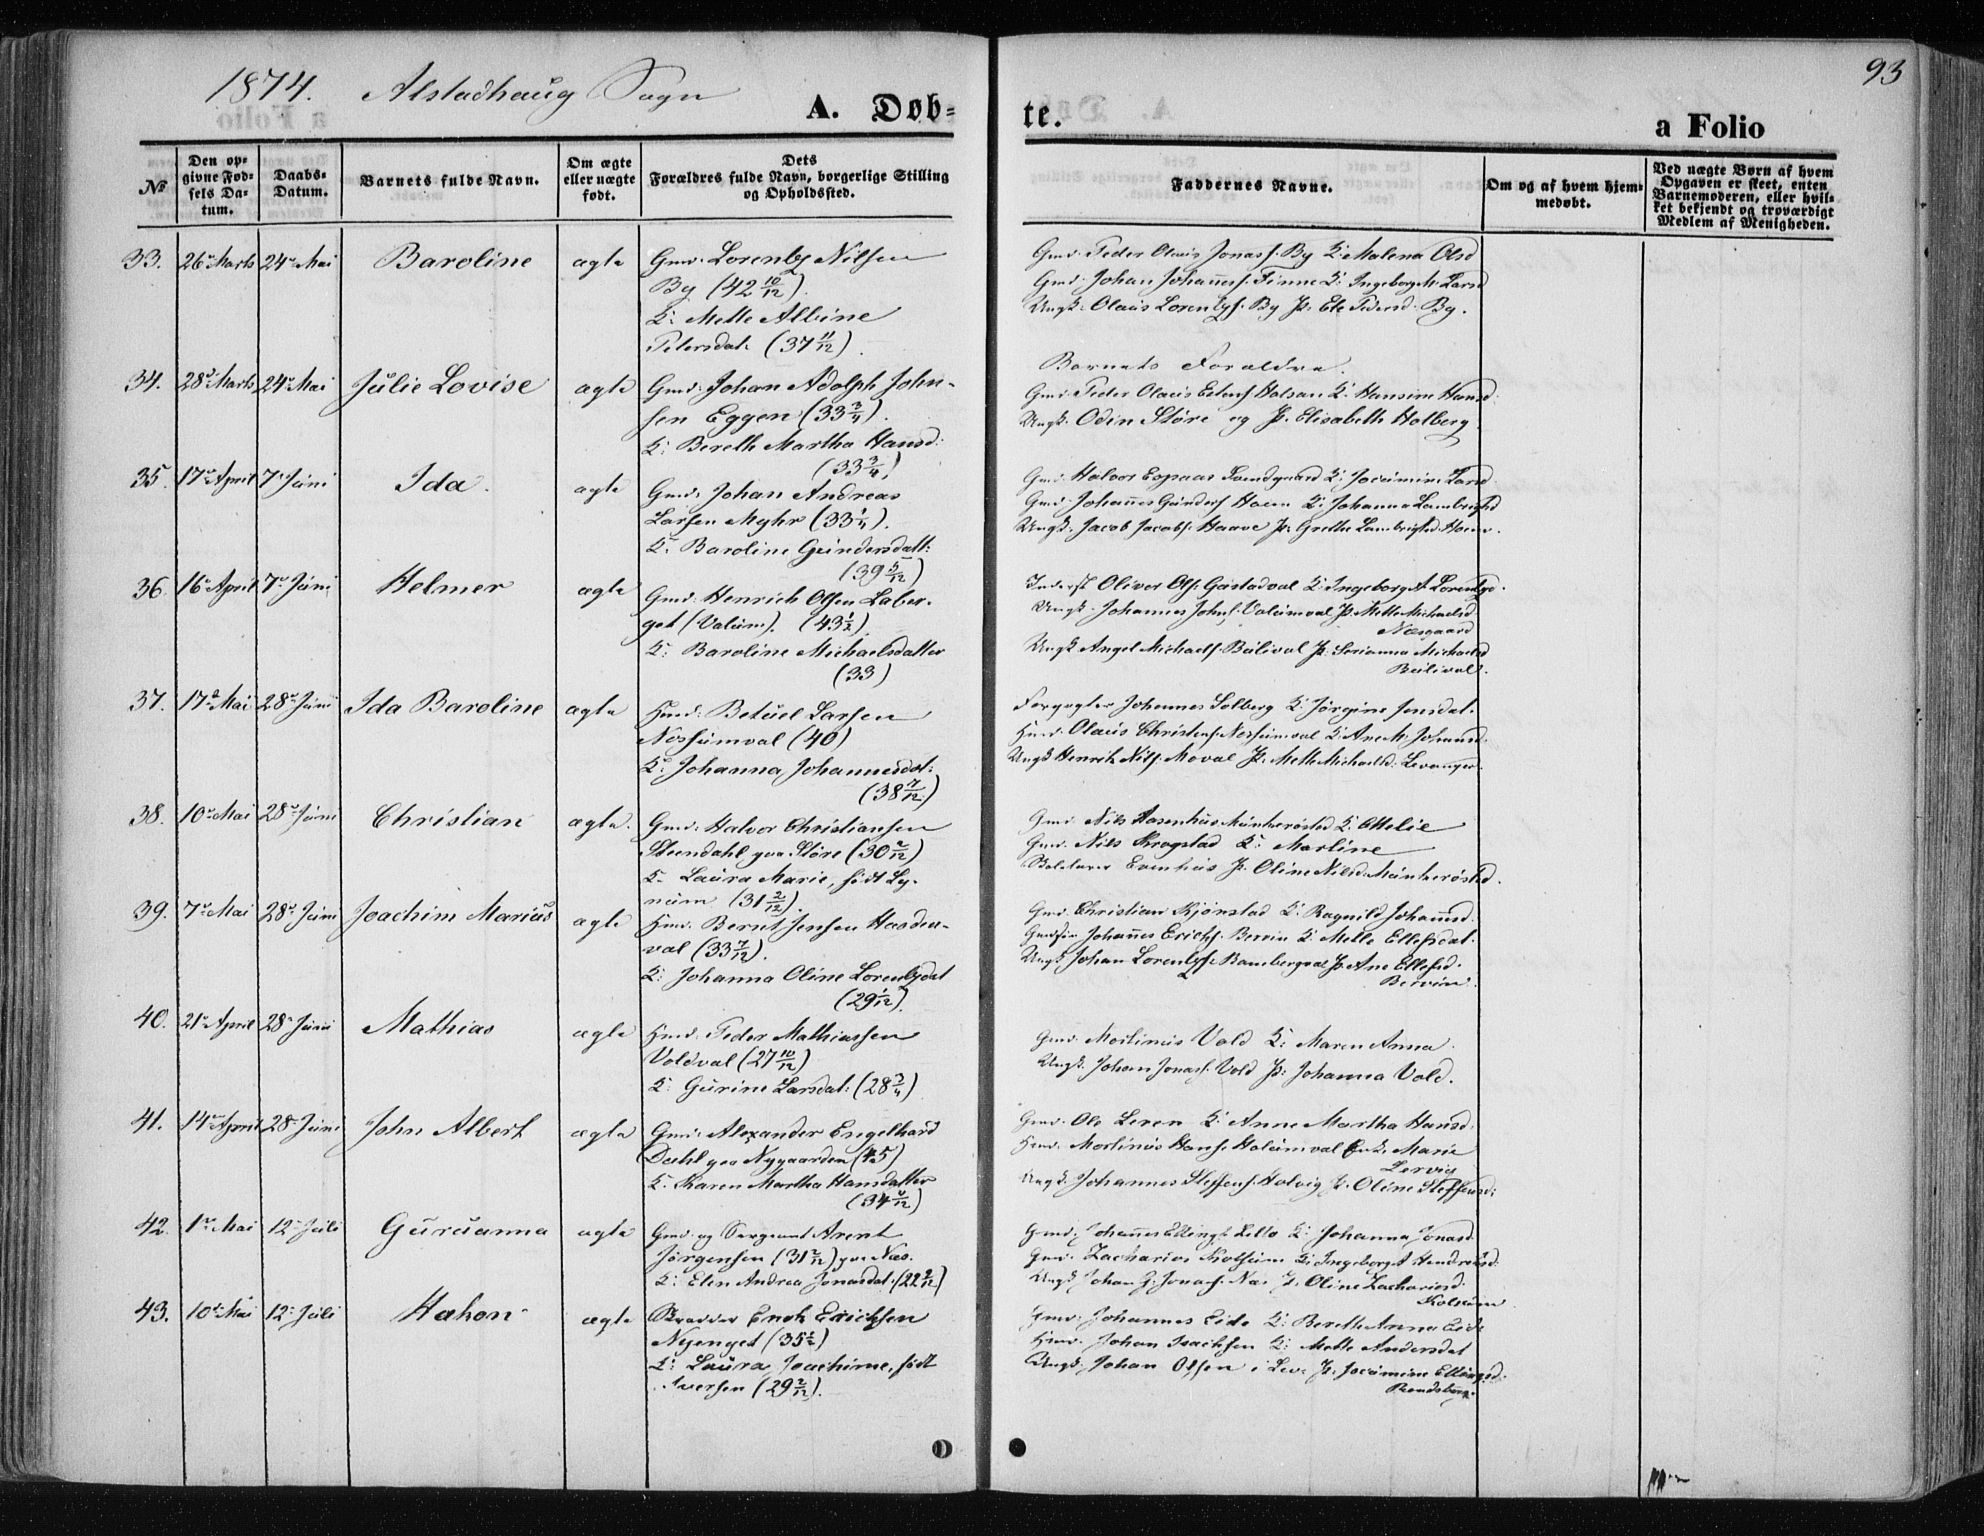 1874. Alstadhaug Sogn
A. Døb=
te.
93
a Folio
№
Den op=
givne Fød=
sels Da=
tum.
Daabs=
Datum.
Barnets fulde Navn.
Om ægte
eller uægte
født.
Dets
Forældres fulde Navn, borgerlige Stilling
og Opholdssted.
Faddernes Navne.
Om og af hvem hjem=
medøbt.
Ved uægte Børn af hvem
Opgaven er skeet, enten
Barnemoderen, eller hvil=
ket bekjendt og troværdigt
Medlem af Menigheden.
33. 26 Marts 24 Mai Baroline ægte Gmd. Lorents Nilsen
By (42 10/12).
K: Mette Albine
Petersdat: (37 11/12).
Gmd. Peder Olaus Jonass. By K: Malena Olsd
Gmd. Johan Johanness. Finne K: Ingeborg M. Larsd
Ungk. Olaus Lorentss. By P: Ele Pedersd. By.
34. 28 Marts 24 Mai Julie Lovise ægte Gmd. Johan Adolph John-
sen Eggen (33 3/4).
K: Bereth Martha Hansd:
(33 3/4)
Barnets Forældre.
Gmd. Peder Olaus Halsan K: Hansine Hansd:
Ungk. Odin Støre og P. Elisabeth Holberg
35. 17 April 7 Juni Ida. ægte Gmd. Johan Andreas
Larsen Myhr (33 1/4).
K. Baroline Gundersdatt:
(39 5/12)
Gmd. Halvor Larsd
Gmd. Johannes Gunders. Hoem K: Johanna Lambrigtsd
Ungk. Jacob Jacobs. Haave P: Grethe Lambrigtsd. Hoem.
36. 16 April 7 Juni Helmer ægte Gmd. Henrich Olsen Laber-
get (Valum). (43 1/2)
K: Baroline Michaelsdatter
(33)
Inderst Oliver Ols. Gustadval K: Ingeborg A Lorentsd.
Ungk. Johannes Johns. Valumval P. Mette Michaelsd
Næsgaard
Ungk Angel Michaels. Bulival P: Serianna Michaelsd
Bulival.
37. 17 Mai 28 Juni Ida Baroline ægte Hmd: Betuel Larsen
Nossumval (40)
K: Johanna Johannesdat:
(38 7/12)
Forpagter Johannes Solberg K: Jørgine Jensdat.
Hmd. Olaus Christens. Nossumval K: Ane M. Johansd.
Ungk Henrik Nils. Moval P: Mette Michaelsd. Levanger.
38. 10 Mai 28 Juni Christian ægte. Gmd: Halvor Christiansen
Steendahl paa Støre (30 2/12)
K. Laura Marie, født Ly-
num (31 2/12).
Gmd. Nils Rosenhus Munkerøsted K. Ottelie
Gmd. Nils Krogstad K: Marline
Evenhus P. Oline Nilsd. Munkerøsted.
39. 7 Mai 28 Juni Joachim Marius ægte Hmd. Bernt Jensen Hasden-
val (33 7/12).
K: Johanna Oline Lorentsdat
(29 1/12).
Gmd. Christian Kjønstad K: Ragnild Johannsd.
Johannes Erichs. Bervin K. Mette Ellefsdat.
Ungk Johan Lorentss. Rambergval P. Ane Ellefsd.
Bervin.
40. 21 April 28 Juni Mathias ægte Hmd: Peder Mathiassen
Voldval (27 10/12)
K: Gurine Larsdat: (28 3/4)
Gmd. Mortinus Vold K: Maren Anna.
Ungk. Johan Jonass. Vold P: Johanna Vold.
41. 14 April 28 Juni John Albert ægte Gmd. Alexander Engelhard
Dahl paa Nygaarden (45)
K. Karen Martha Hansdatter
(34 4/12)
Gmd. Ole Leren K: Anne Martha Hansd.
Hmd. Mortinus Hans. Halumval Enke Marie
Lervig
Ungk. Johannes Steffens. Halvig P. Oline Steffensd:
42. 1 Mai 12 Juli Guruanna ægte Gmd. og Sergeant Arent
Jørgensen (31 2/12) paa Næs.
K: Elen Andrea Jonasdat. (22 9/12)
Gmd. Johannes K: Johanna Jonasd.
Gmd. Zacharias Kolsum K: Ingeborg A Hendriksd.
Ungk Johan G. Jonass. Næs P. Oline Zachariasd.
Kolsum
43. 10 Mai 12 Juli Hakon ægte Enok Erichsen
Nyenget (35 1/2)
K: Laura Joachime, født
Iversen (29 2/12).
Gmd. Johannes Eide K: Berethe Anna Eide
Hmd. Johan Isachsen K: Mette Andersdat
Ungk. Johan Olsen i Lev. P. Jocumine Ellingsd.